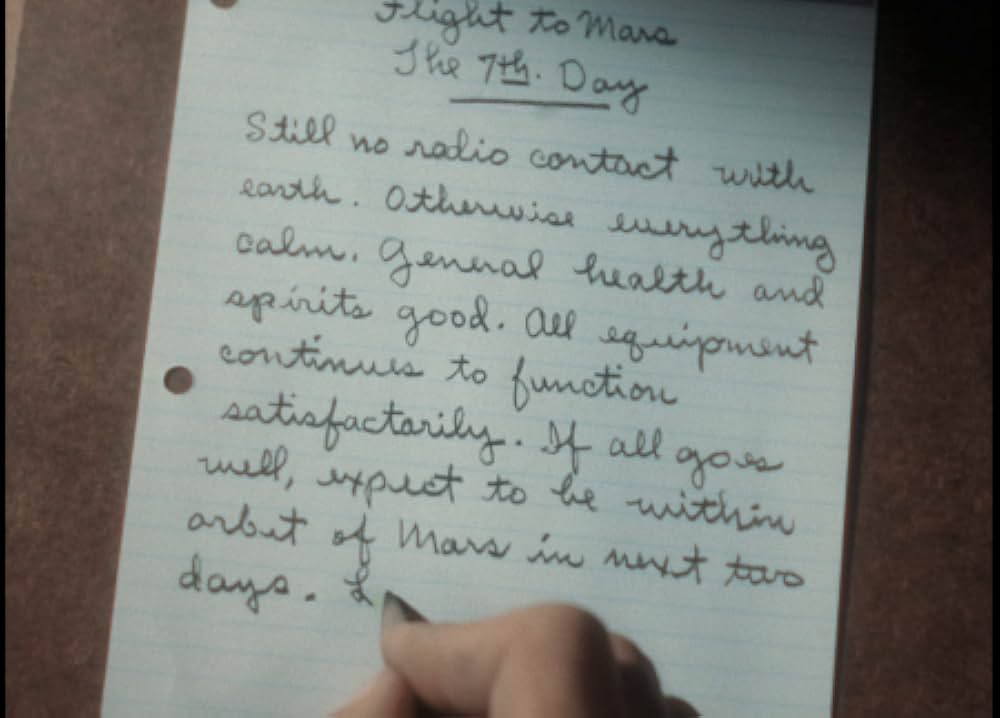 Flight to Mars
The 7th. Day
Still no radio contact with
earth. Otherwise everything
calm. General health and
spirits good. All equipment
continues to function
satisfactorily. If all goes
well, expect to be within
orbit of Mars in next two
days.